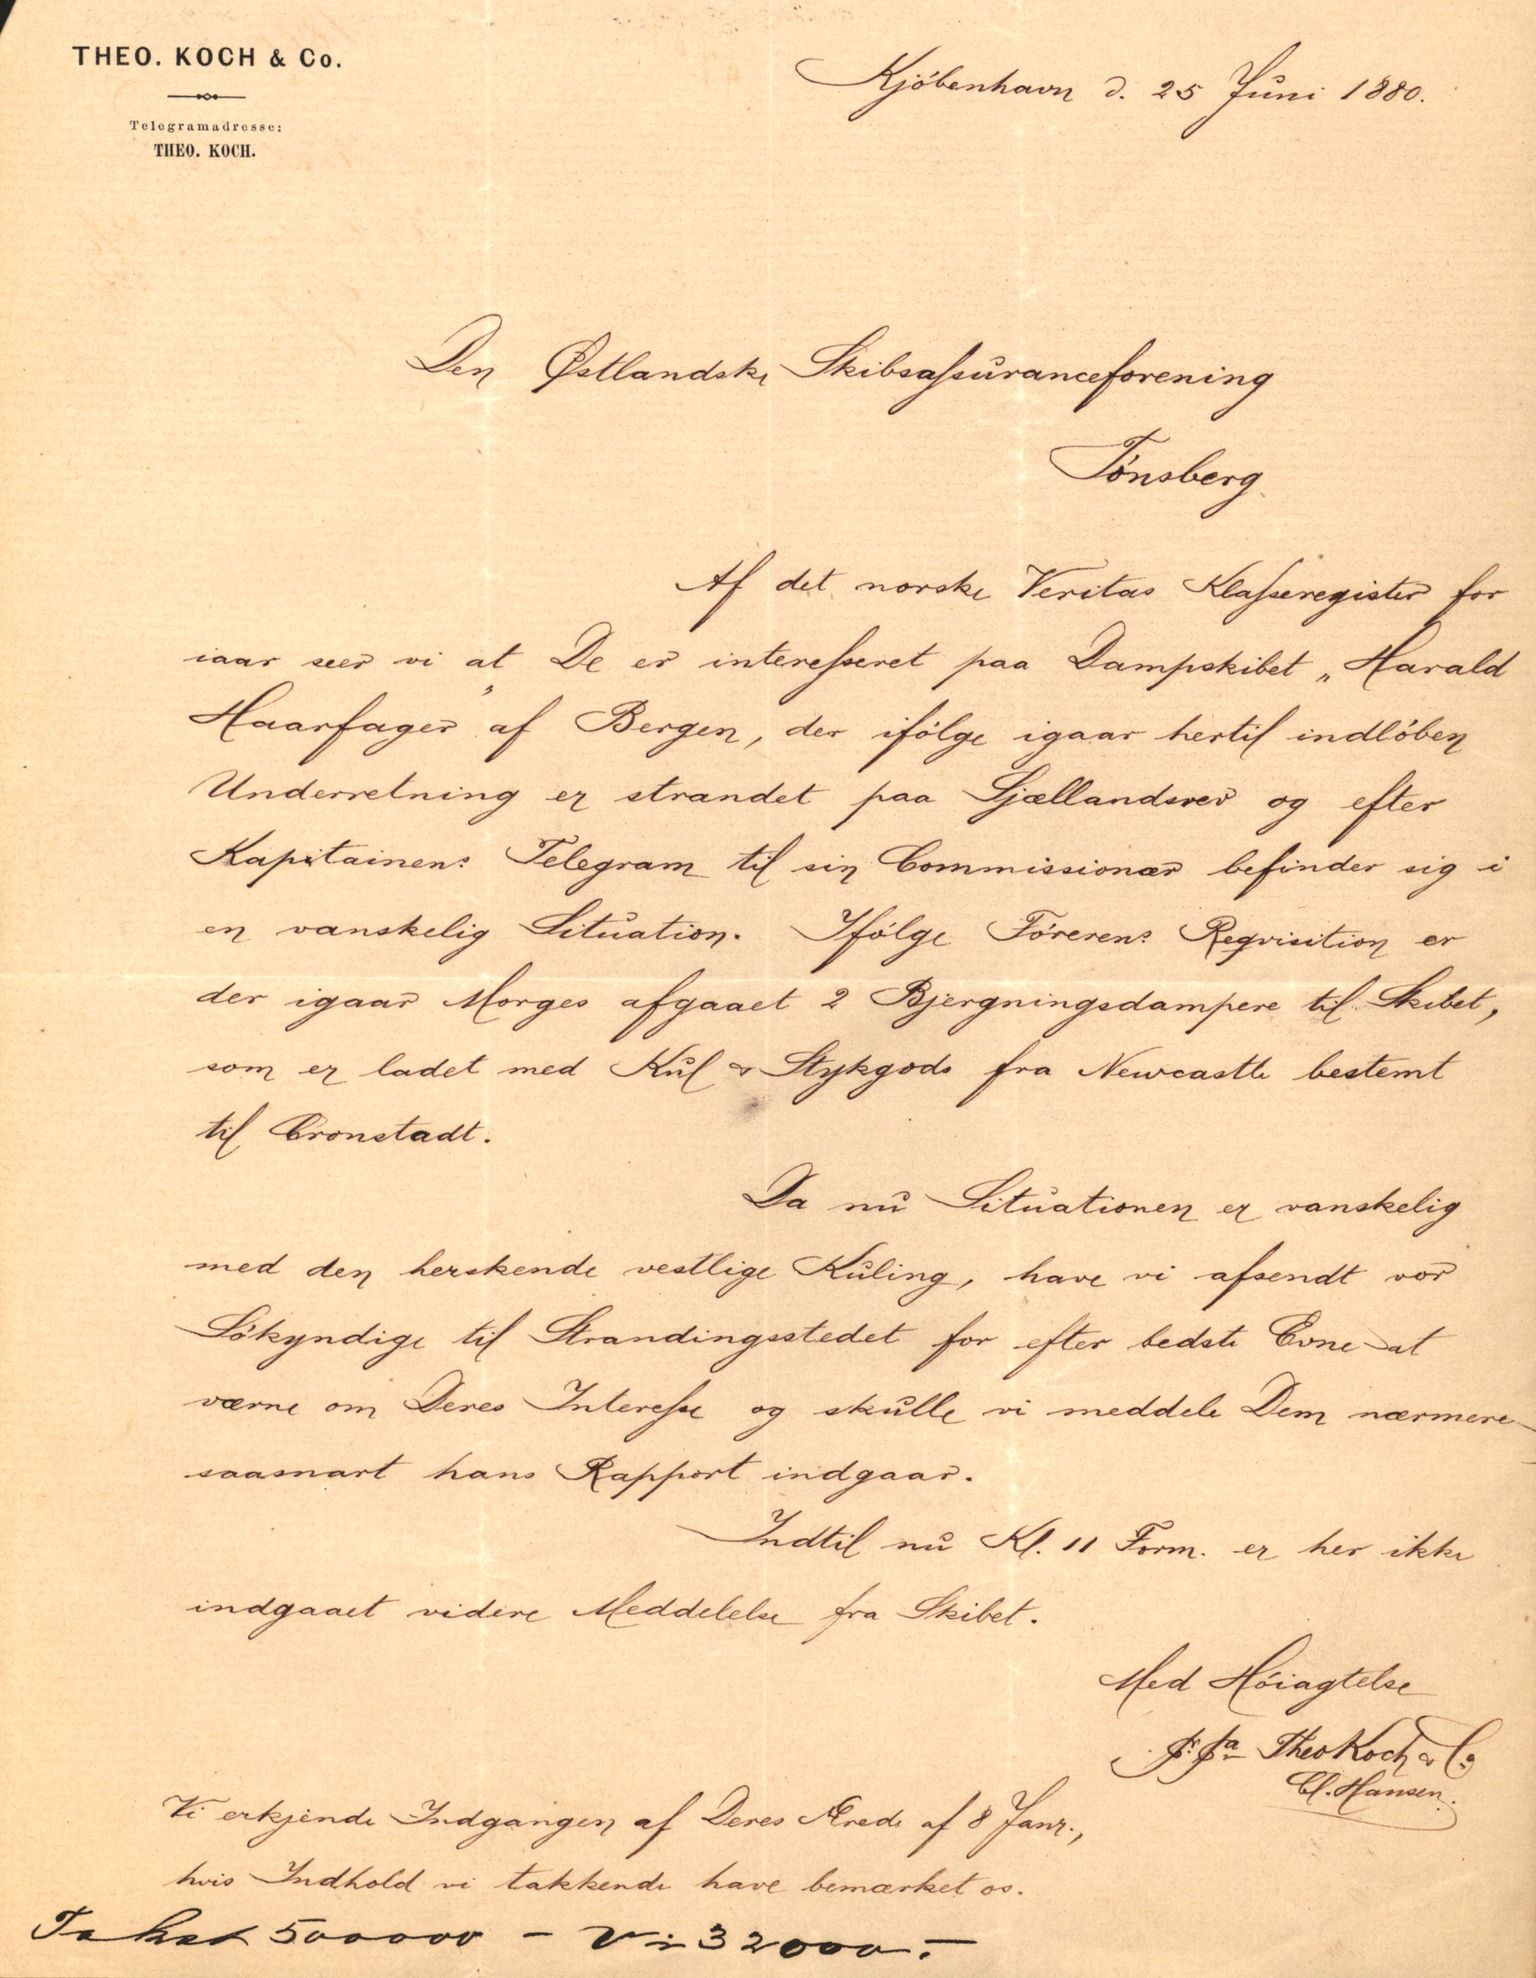 THEO. KOCH & Co.
Telegramadresse:
THEO. KOCH.
Kjöbenhavn d. 25 Juni 1880.
Den Østlandske Skibsassuranceforening
Tönsberg
Af det norske Veritas Klasseregister for
iaar seer vi at De er interesseret paa Dampskibet „Harald
Haarfager" af Bergen, der ifölge igaar hertil indlöben
Underretning er strandet paa Sjællandsrev og efter
Kapitainens Telegram til sin Commissionær befinder sig i
en vanskelig Situation. Ifölge Förerens Reqvisition er
der igaar Morges afgaaet 2 Bjergningsdampere til Skibet,
som er ladet med Kul & Stykgods fra Newcastle bestemt
til Cronstadt.
Da nu Situationen er vanskelig
med den herskende vestlige Kuling, have vi afsendt vor
Sökyndige til Strandingsstedet for efter bedste Evne at
værne om Deres Interesse og skulle vi meddele Dem nærmere
saasnart hans Rapport indgaar.
Indtil nu Kl. 11 Form. er her ikke
indgaaet videre Meddelelse fra Skibet.
Med Höiagtelse
pr. pa Theo Koch & Co
Cl. Hansen.
Vi erkjende Indgangen af Deres Ærede af 8 Janr.,
hvis Indhold vi takkende have bemærket os.
Takst 500000 - Vi 32000.-